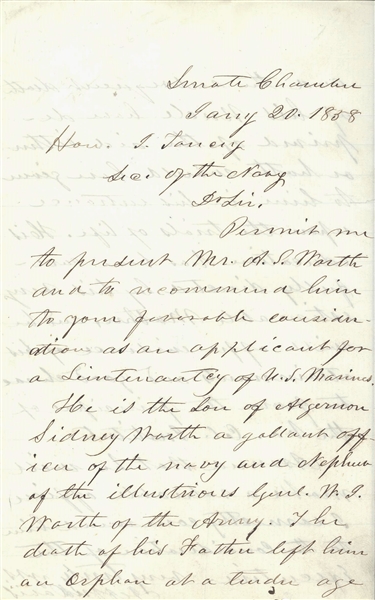 Senate Chamber
Jany 20. 1858
Hon. I. Toucey
Sec. of the Navy
Dr Sir,
Permit me
to present Mr. A. S. Worth
and to recommend him
to your favorable consider-
ation as an applicant for
a Lieutenantcy of U.S. Marines.
He is the Son of Algernon
Sidney Worth a gallant off
icer of the navy and Nephew
of the illustrious Genl. W. J.
Worth of the Army. The
death of his Father left him
an Orphan at a tender age